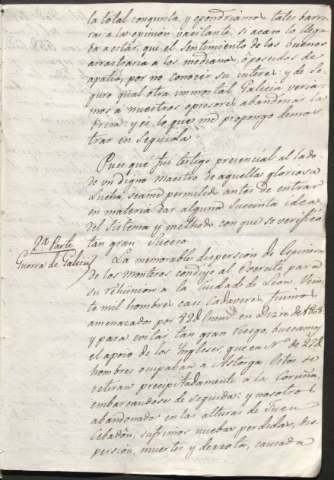 la total conquista, y pondriamos tales barre-
ras a la opinion vacilante, si acaso la llega-
ba a estar, que el sentimiento de los buenos
arrastraria a los medianos, ó poseidos de
apatia, por no conocer su interes: y de se-
guro qual otra immortal Galicia veria-
mos a nuestros opresores abandonar las
Armas: y es lo que me propongo demos-
trar en seguida.
Pues que fui testigo presencial al lado
de un digno Maestro de aquellas gloriosas
luchas, seame permitido antes de entrar
en materia dar alguna succinta idea
del sistema y methodo con que se verificó
tan gran Suceso.
2ª Parte
Guerra de Galicia
La memorable dispersion de Espinosa
de los Monteros condujo al Exercito para
su rehunion a la Ciudad de Leon. Vein-
te mil hombres casi cadaveres, fuimos
amenazados por en Diz.re de 1808
y para evitar tan gran riesgo buscamos
el apoyo de los Yngleses, que en Nº de 27
hombres ocupaban a Astorga. Estos se
retiran precipitadamente a la Coruña,
embarcandose de seguida: y nosotros
abandonados en las alturas de Fuen
Cebadon, sufrimos nuebas perdidas, dis-
persion, muertes y derrota, causada